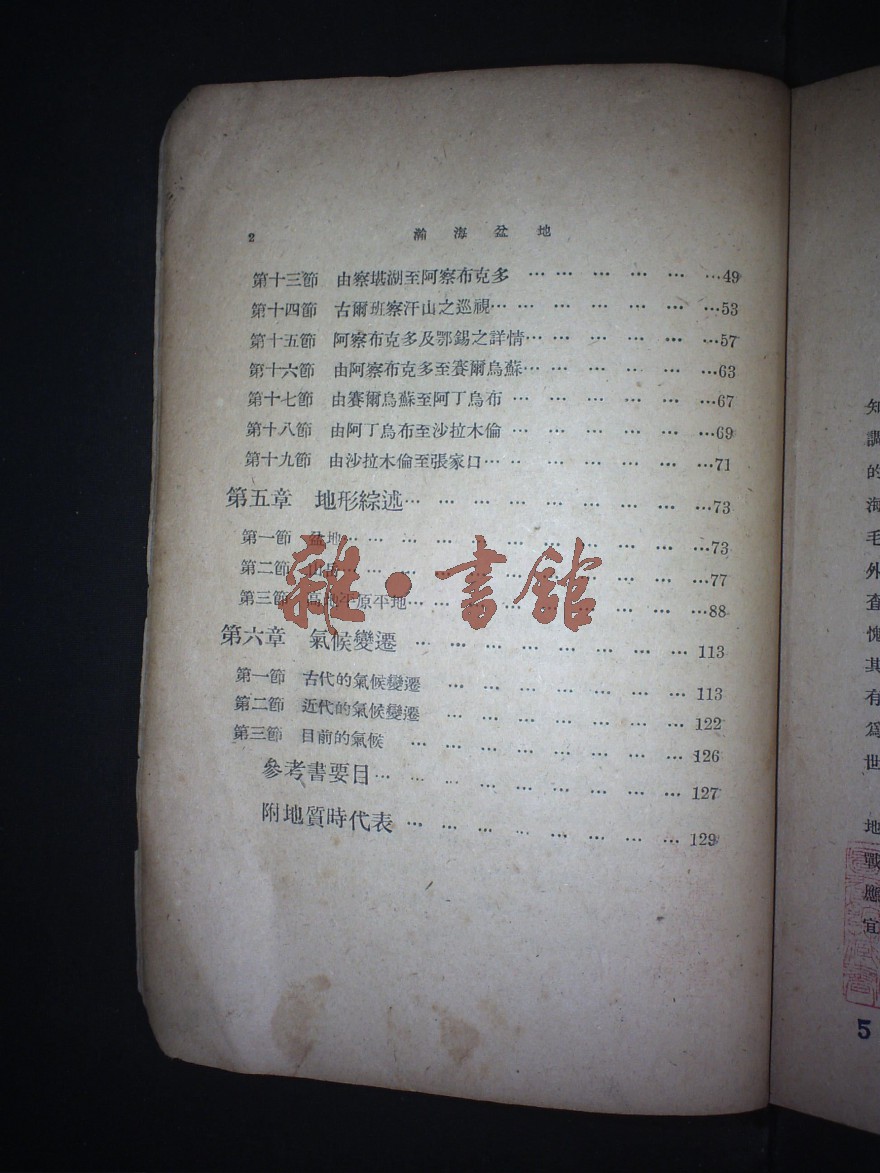 2 瀚海盆地
第十三節 由察堪湖至阿察布克多 … … … … … …49
第十四節 古爾班察汗山之巡視… … … … … …53
第十五節 阿察布克多及鄂錫之詳情… … … … … …57
第十六節 由阿察布克多至賽爾烏蘇… … … … … …63
第十七節 由賽爾烏蘇至阿丁烏布 … … … … … …67
第十八節 由阿丁烏布至沙拉木倫 … … … … … …69
第十九節 由沙拉木倫至張家口… … … … … … …71
第五章 地形綜述… … … … … … … … …73
第一節 盆地… … … … … … … … …73
第二節 山岳… … … … … … … … …77
第三節 高地平原平地… … … … … … … …88
第六章 氣候變遷 … … … … … … … … 113
第一節 古代的氣候變遷 … … … … … … … 113
第二節 近代的氣候變遷 … … … … … … … 122
第三節 目前的氣候 … … … … … … … … 126
參考書要目… … … … … … … … 127
附地質時代表 … … … … … … … … 129
雜·書館
知
調
的
海
毛
外
查
愧
其
有
爲
世
地
戰
應
宜
5